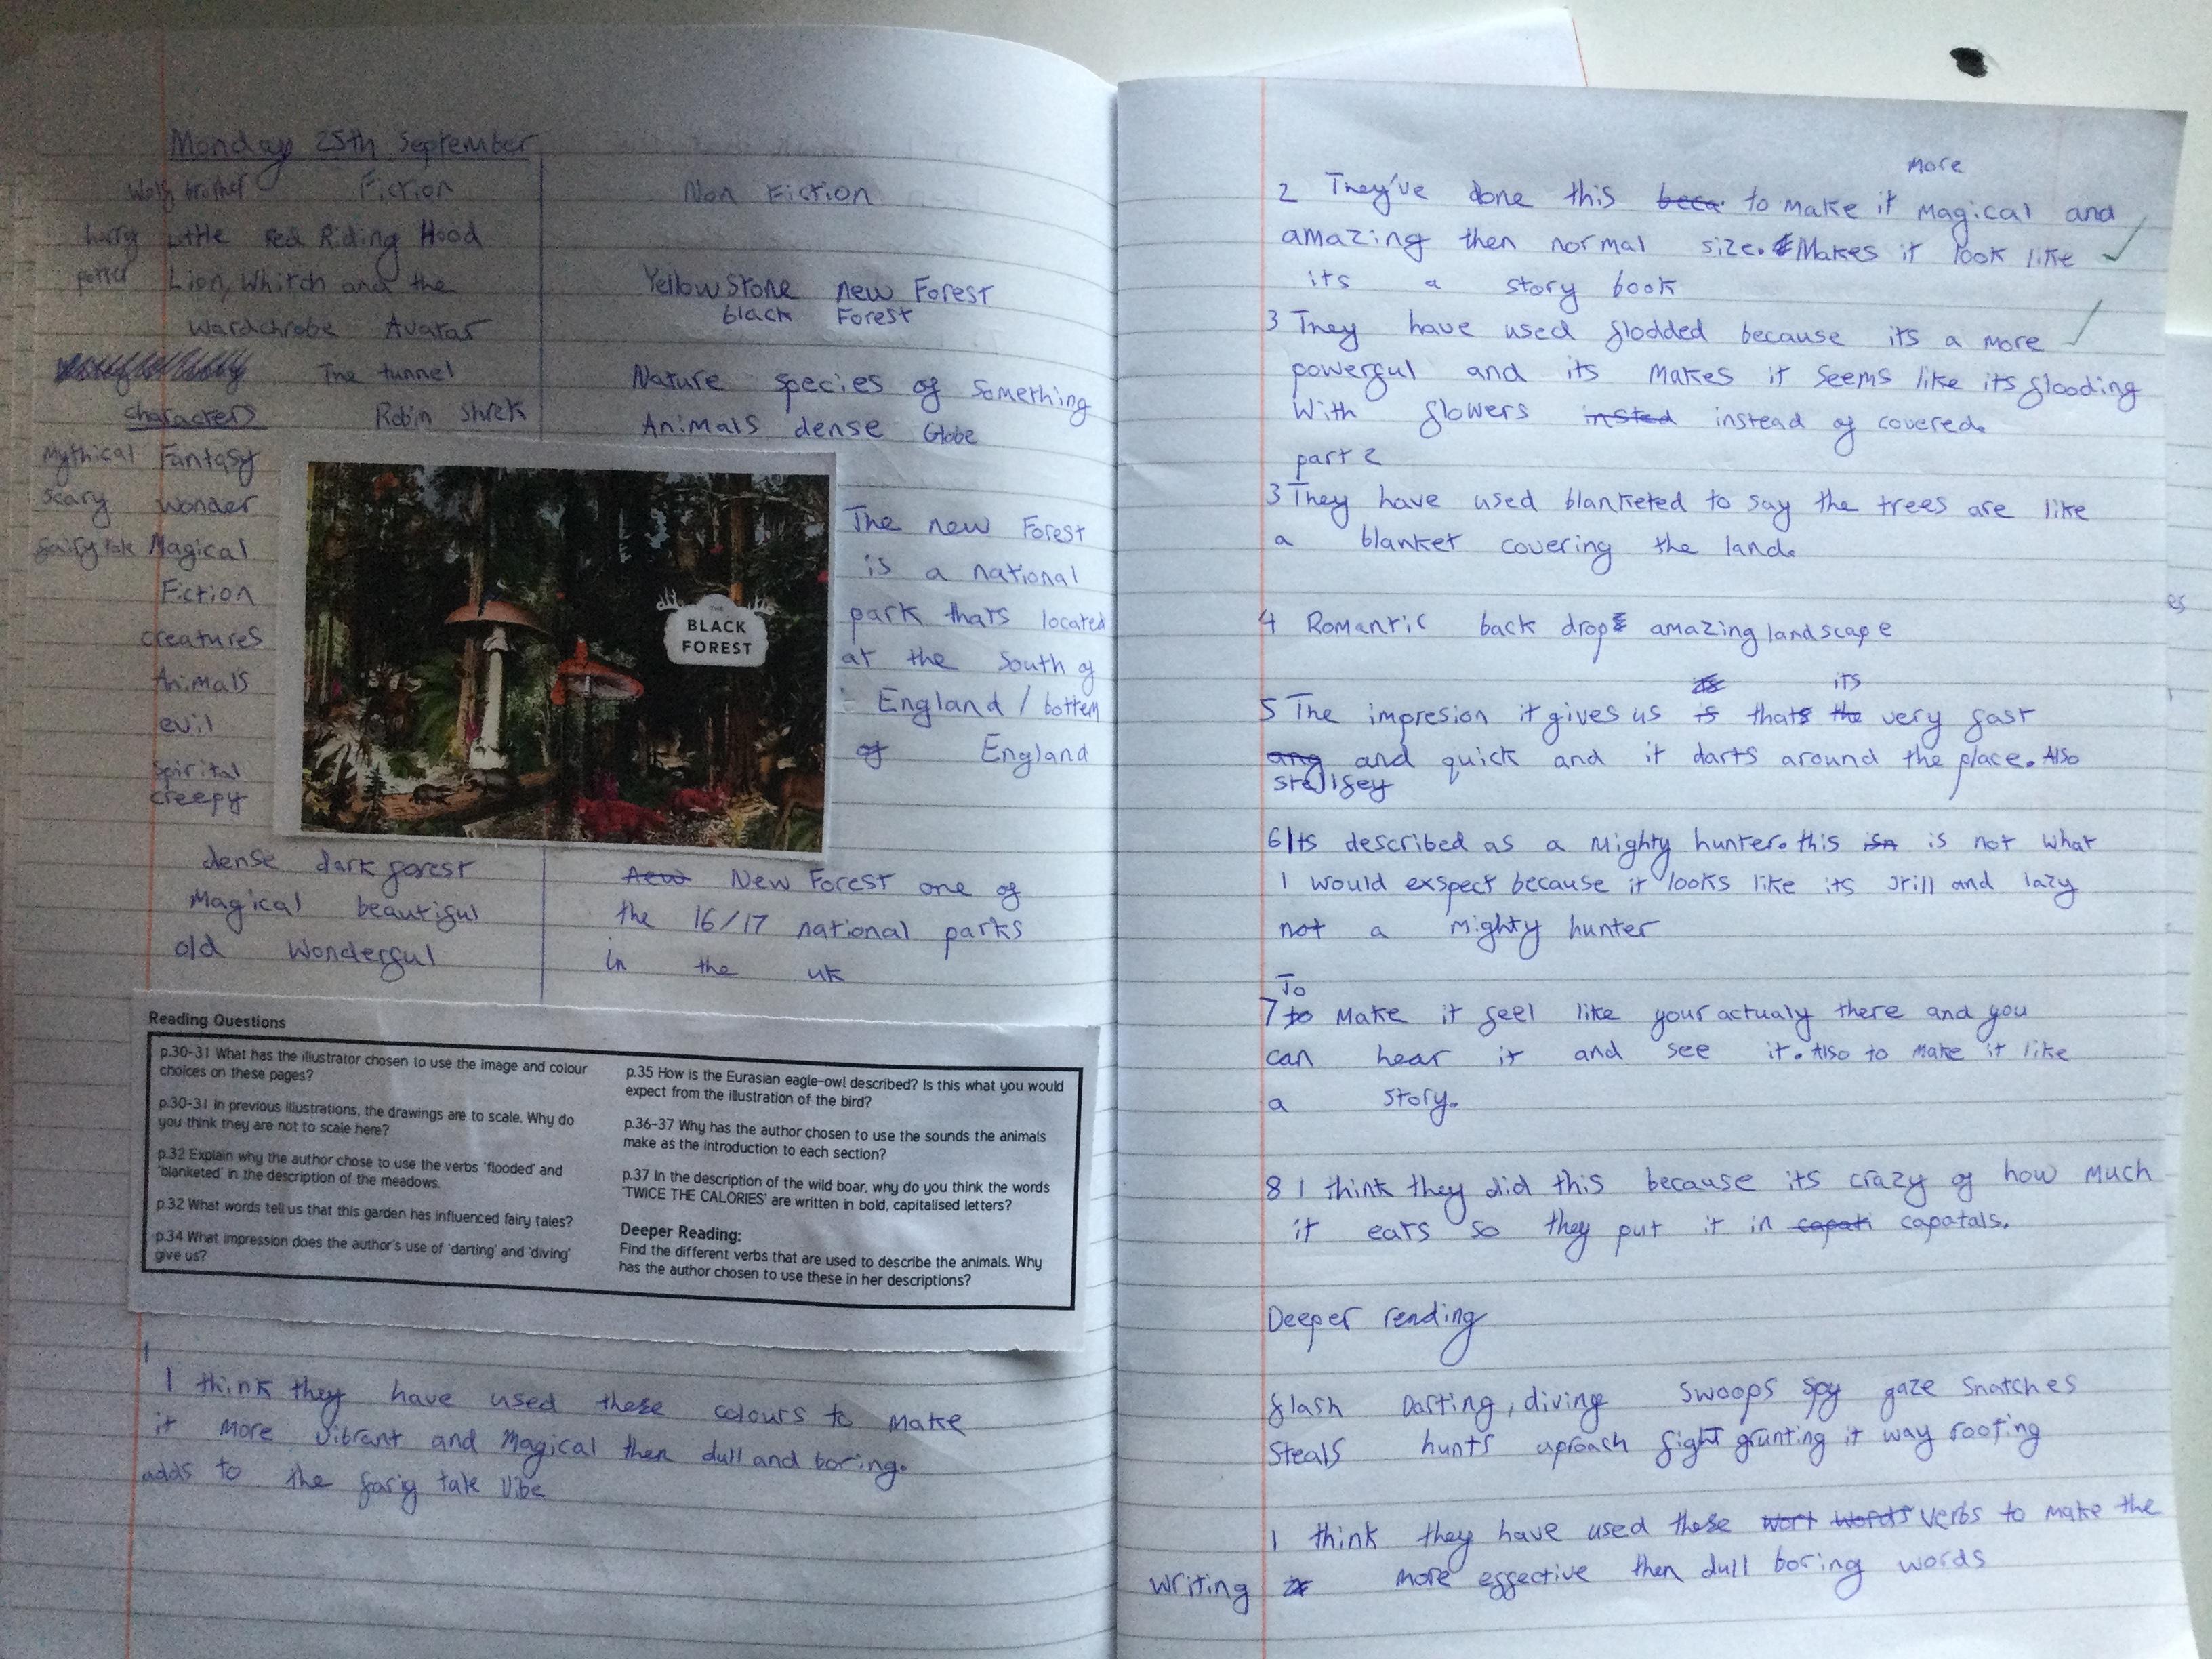 Monday 25th September
Wolf brother Fiction
Harry Little Red Riding Hood
potter Lion, Whitch and the
Wardchrobe Avatar
The tunnel
characters Robin Shrek
Mythical Fantasy
scary wonder
fairy tale Magical
Fiction
creatures
Animals
evil
Spirital
creepy
dense dark forest
Magical beautiful
old Wonderful
Non Fiction
Yellow Stone new Forest
black Forest
Nature species of Something
Animals dense Globe
THE
BLACK
FOREST
The new Forest
is a national
park thats located
at the South of
England / bottem
of England
New New Forest one of
the 16/17 national parks
in the uk
Reading Questions
p.30-31 What has the illustrator chosen to use the image and colour
choices on these pages?
p.30-31 In previous illustrations, the drawings are to scale. Why do
you think they are not to scale here?
p.32 Explain why the author chose to use the verbs 'flooded' and
'blanketed' in the description of the meadows.
p.32 What words tell us that this garden has influenced fairy tales?
p.34 What impression does the author's use of 'darting' and 'diving'
give us?
p.35 How is the Eurasian eagle-owl described? Is this what you would
expect from the illustration of the bird?
p.36-37 Why has the author chosen to use the sounds the animals
make as the introduction to each section?
p.37 In the description of the wild boar, why do you think the words
'TWICE THE CALORIES' are written in bold, capitalised letters?
Deeper Reading:
Find the different verbs that are used to describe the animals. Why
has the author chosen to use these in her descriptions?
1
I think they have used these colours to make
it more vibrant and Magical then dull and boring.
adds to the fariy tale vibe
More
2 They've done this beca to make it Magical and
amazing then normal size. Makes it look like
its a story book
3 They have used flodded because its a more
powerful and its makes it seems like its flooding
With flowers insted instead of covered.
part 2
3 They have used blanketed to say the trees are like
a blanket covering the land.
4 Romantic back drop amazing landscape
its
5 The impresion it gives us is thats the very fast
ang and quick and it darts around the place. Also
6 Its described as a Mighty hunter. this isn is not what
I would exspect because it looks like its still and lazy
not a Mighty hunter
To
7 to Make it feel like your actualy there and you
can hear it and see it. Also to make it like
a story.
8 I think they did this because its crazy of how much
it eats so they put it in capati capatals.
Deeper reading
flash Darting, diving swoops spy gaze snatches
Steals hunts aproach fight grunting it way rooting
I think they have used these wort words verbs to make the
writing more effective then dull boring words